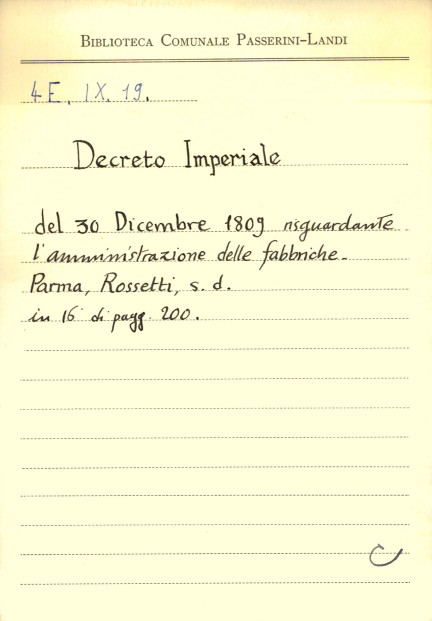 BIBLIOTECA COMUNALE PASSERINI-LANDI
4 E. IX. 19.
Decreto Imperiale
del 30 Dicembre 1809 risguardante
l'amministrazione delle fabbriche.
Parma, Rossetti, s. d.
in 16° di pagg. 200.
C